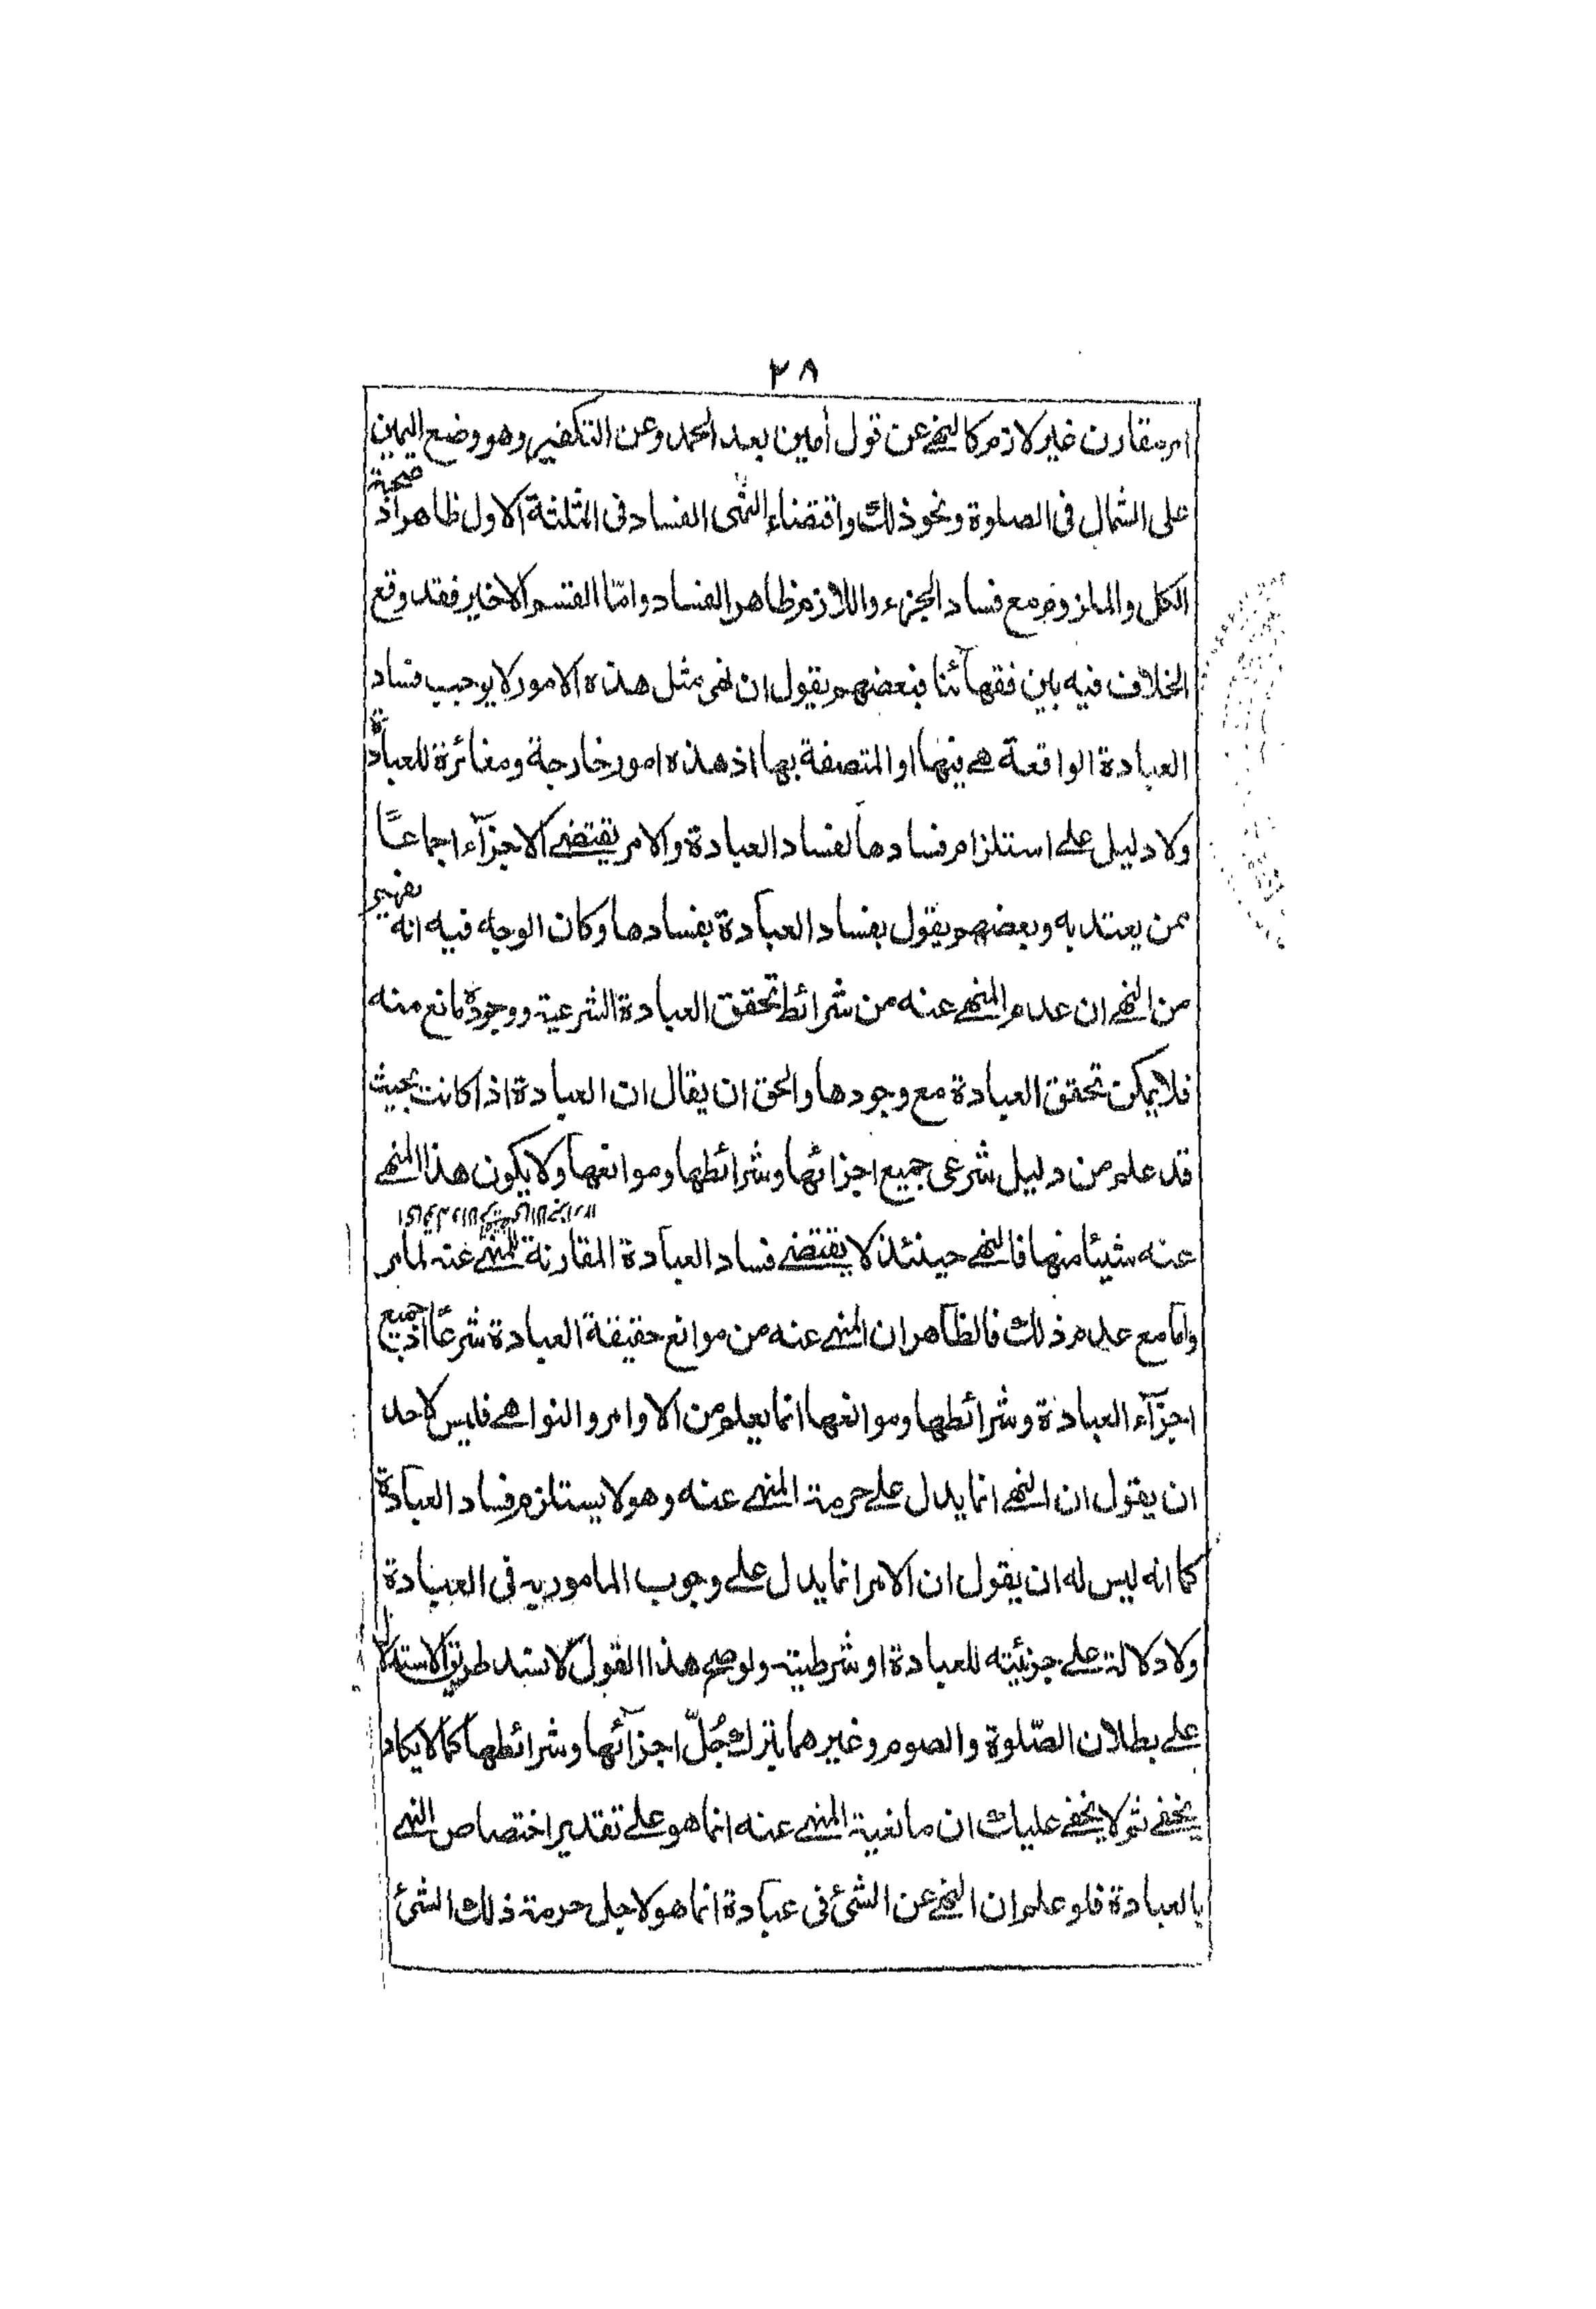 ٢٨
امر مقارن غير لازم كالنهے عن قول أمين بعد الحمد وعن التكفير وهو وضع اليمين
على الشمال فى الصلوة ونحو ذلك واقتضاء النهى الفساد فى الثلثة الاول ظاهر اذ صحية
الكل والملزوم مع فساد الجزء واللازم ظاهر الفساد وامّا القسم الاخير فقد وقع
الخلاف فيه بين فقهآئنا فبعضهم يقول ان نهى مثل هذه الامور لا يوجب فساد
العبادة الواقعة هے فيها او المتصفة بها اذ هذه امور خارجة ومغائرة للعبادة
ولا دليل علے استلزام فسادها لفساد العبادة والامر يقتضے الاجزآء اجماعًا
ممن يعتد به وبعضهم يقول بفساد العبادة بفسادها وكان الوجه فيه انه يفهم
من النهے ان عدم المنهے عنه من شرائط تحقق العبادة الشرعية ووجوده مانع منه
فلا يمكن تحقق العبادة مع وجودها والحق ان يقال ان العبادة اذا كانت بحيث
قد علم من دليل شرعى جميع اجزائها وشرائطها وموانعها ولا يكون هذا المنهے
عنه شيئا منها فالنهے حينئذ لا يقتضے فساد العبادة المقارنة للمنهے عنه لمامر
واما مع عدم ذلك فالظاهر ان المنهے عنه من موانع حقيقة العبادة شرعًا اذ جميع
اجزآء العبادة وشرائطها وموانعها انما يعلم من الاوامر والنواهے فليس لاحد
ان يقول ان النهے انما يدل علے حرمة المنهے عنه وهو لا يستلزم فساد العبادة
كما انه ليس له ان يقول ان الامر انما يدل علے وجوب المامور به فى العبادة
ولا دلالة علے جزئيته للعبادة او شرطيته ولو صح هذا القول لانسد طريق الاستدلال
علے بطلان الصّلوة والصوم وغيرهما بترك جُلّ اجزآئها وشرائطها كما لا يكاد
يخفے ثم لا يخفے عليك ان مانعية المنهے عنه انما هو علے تقدير اختصاص النهے
بالعبادة فلو علم ان النهے عن الشئ فى عبادة انما هو لاجل حرمة ذلك الشئ